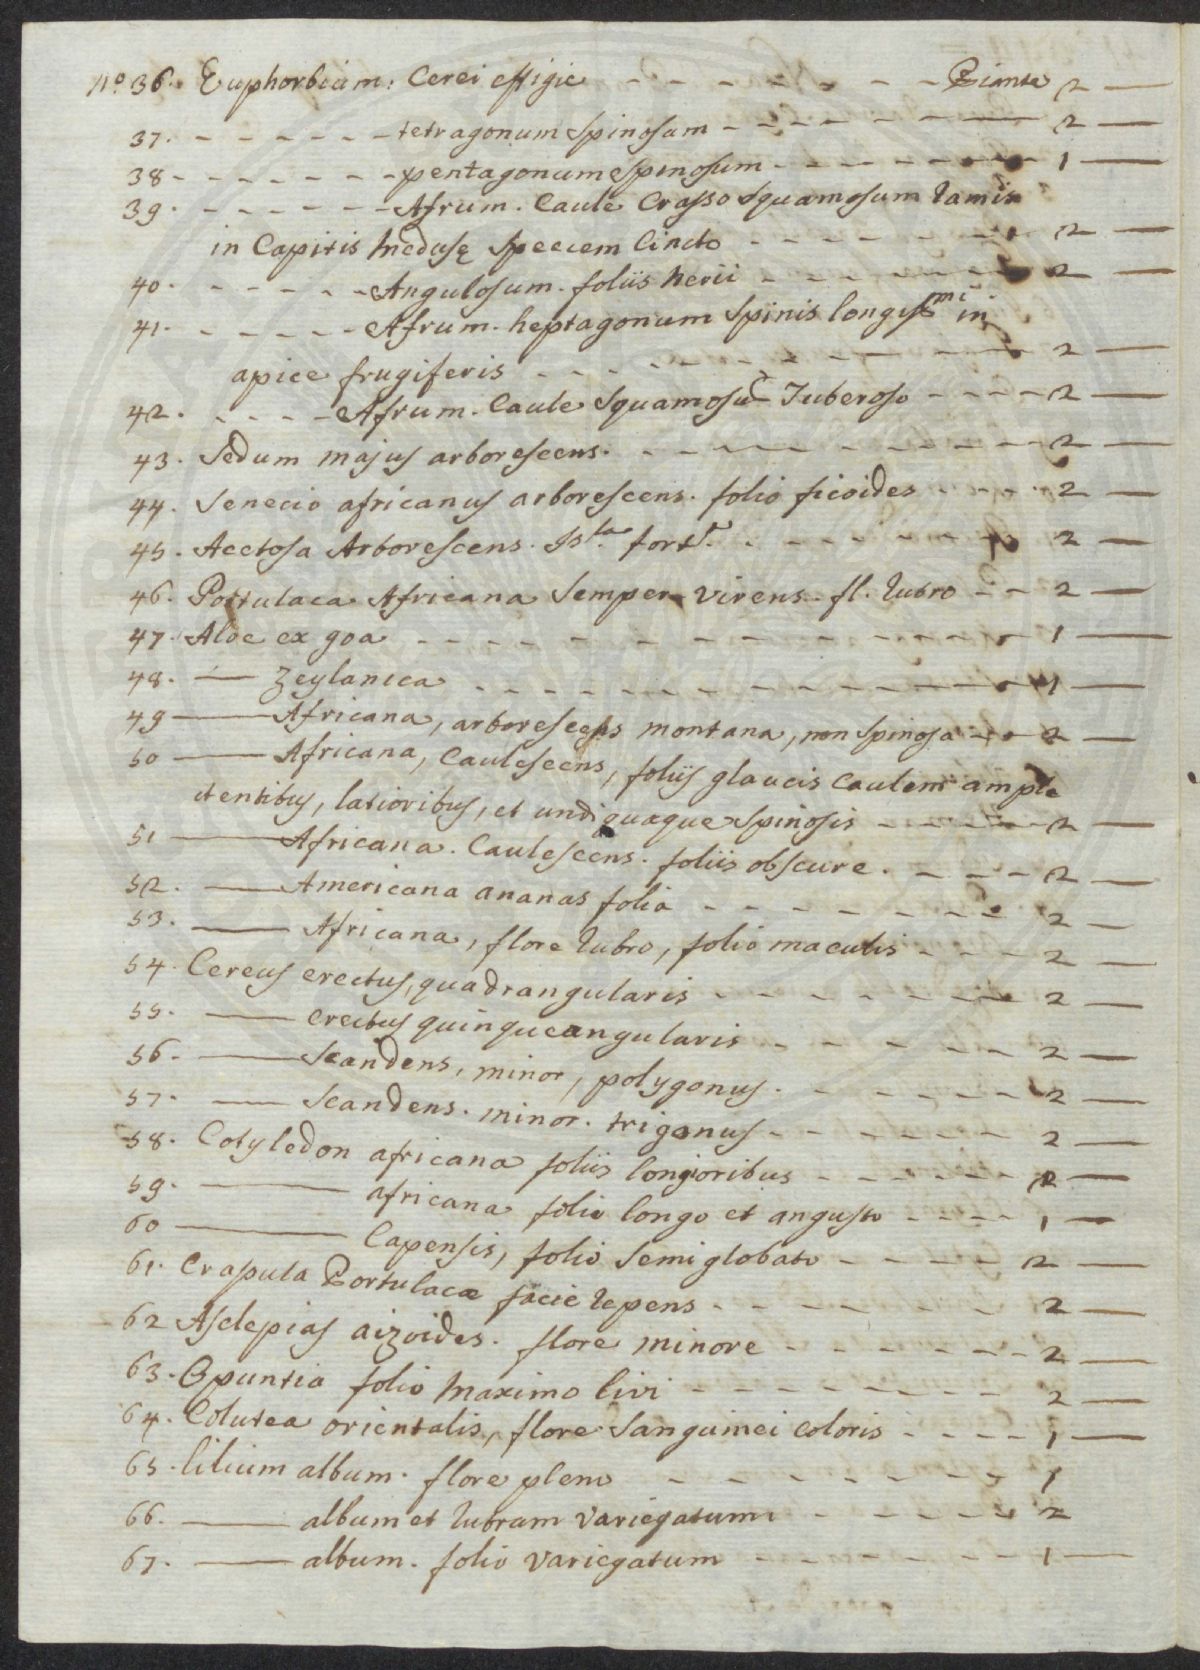 nº 36. Euphorbium. Cerei effigie - - - - - - - Piante 2 —
37. - - - - - - tetragonum spinosum - - - - - - - - 2 —
38 - - - - - - - pentagonum spinosum - - - - - - - 1 —
39. - - - - - - Afrum. Caule Crasso squamosum ramis
in Capitis Medusę speciem Cincto - - - - - - - 2 —
40. - - - - - - Angulosum. foliis nerii - - - - - - - 2 —
41. - - - - - Afrum. heptagonum spinis longissmi in
apice frugiferis - - - - - - - - - - 2 —
42. - - - - Afrum. Caule squamosu Tuberoso - - - - 2 —
43. Sedum majus arborescens. - - - - - - - - - - 2 —
44. Senecio africanus arborescens. folio ficoides - - - - 2 —
45. Acetosa Arborescens. Isla. fortt. - - - - - - - 2 —
46. Portulaca Africana semper virens. fl. rubro - - 2 —
47. Aloe ex goa - - - - - - - - - - - - 1 —
48. — Zeylanica - - - - - - - - - - - 1 —
49 — Africana, arborescens montana, non spinosa - - 2 —
50 — Africana, Caulescens, foliis glaucis caulem ample
ctentibus, latioribus, et undiquaque spinosis - - - - - 2 —
51 — Africana. Caulescens. foliis obscure. - - - - 2 —
52. — Americana ananas folio - - - - - - - - 2 —
53. — Africana, flore rubro, folio maculis - - - - 2 —
54. Cereus erectus, quadrangularis - - - - - - - 2 —
55. — erectus quinqueangularis - - - - - - 2 —
56. — Scandens, minor, polygonus. - - - - - - 2 —
57. — Scandens. minor. trigonus - - - - - - - 2 —
58. Cotyledon africana foliis longioribus - - - - - - 2 —
59. — africana folio longo et angusto - - - - 1 —
60 — Capensis, folio semiglobato - - - - - 2 —
61. Crapula Portulacæ facie repens. - - - - - - - 2 —
62 Asclepias aizoides. flore minore - - - - - - - 2 —
63. Opuntia folio maximo livi - - - - - - - - - 2 —
64. Colutea orientalis, flore sanguinei coloris - - - - 1 —
65. lilium album. flore pleno - - - - - - - 1
66. — album et rubrum variegatum - - - - - - 2
67. — album. folio variegatum - - - - - - - - 1 —